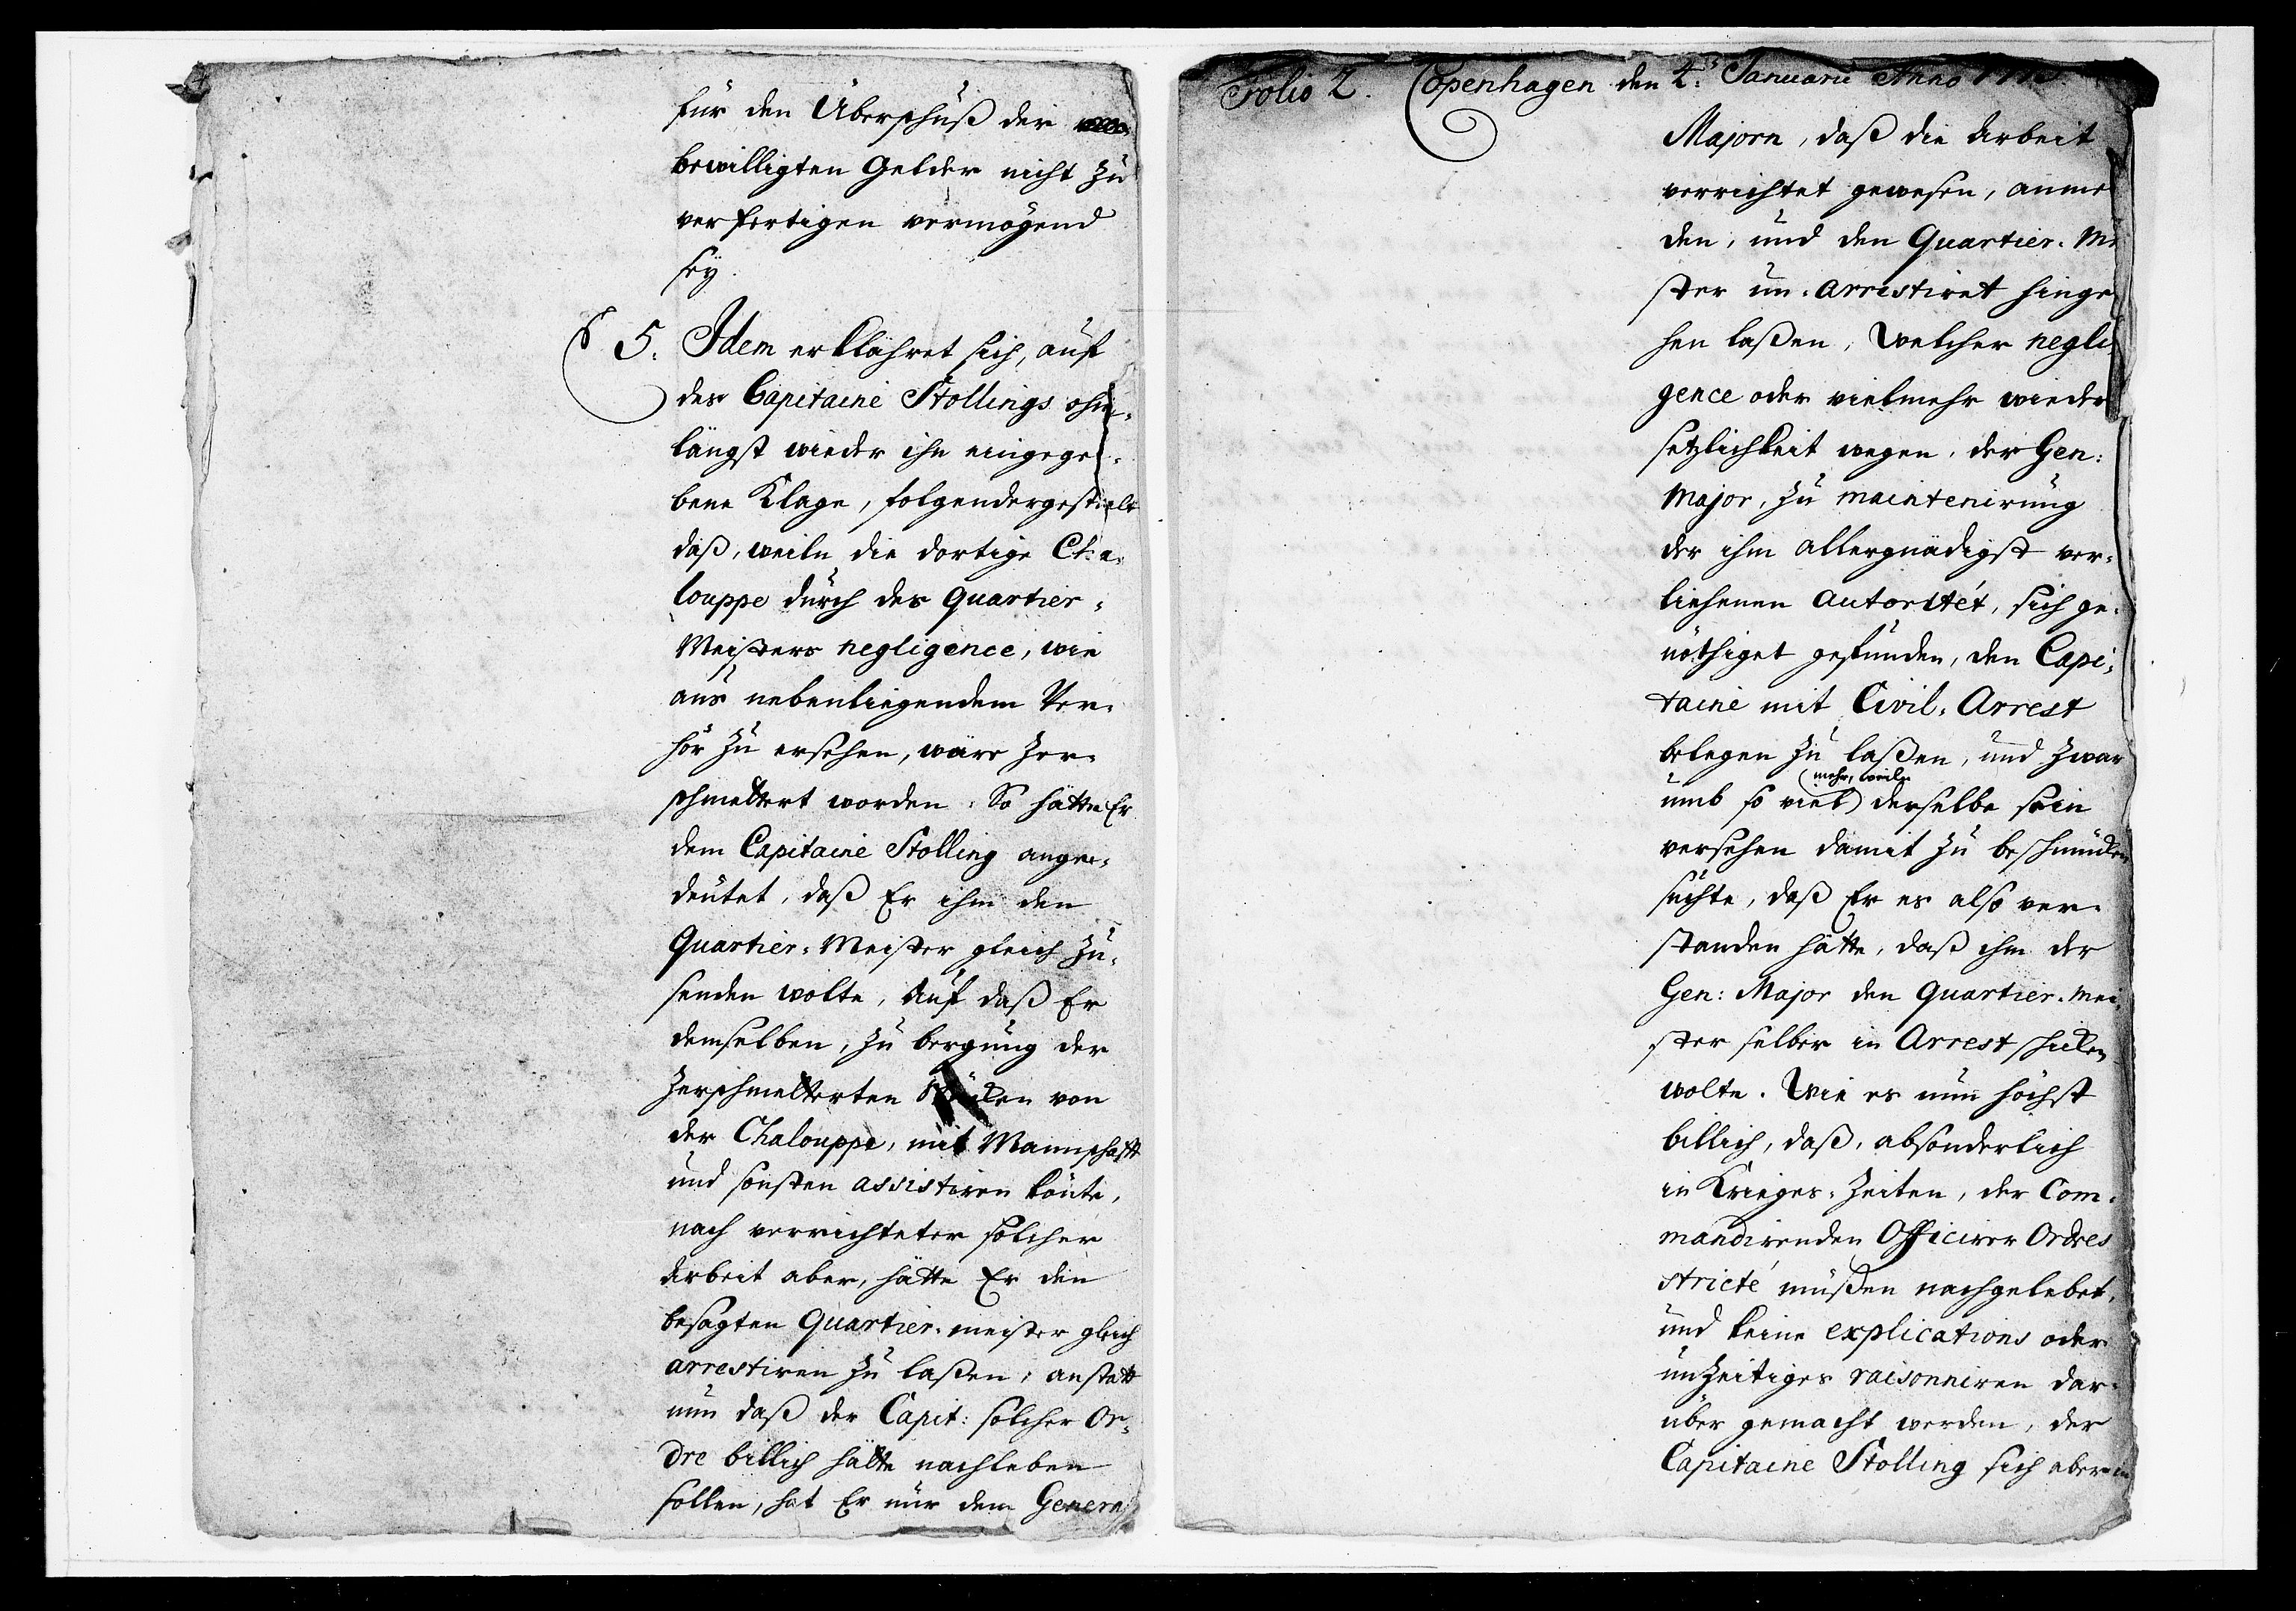 für den Überschuß der
bewilligten Gelder nicht zu
verfertigen vermögend
sey.
§ 5. Idem erklähret sich, auf
des Capitaine Stollings ohn-
längst wieder ihn eingege-
bene Klage, folgendergestalt
daß, weiln die dortige Cha-
louppe durch des Quartier-
Meisters negligence, wie
aus nebenliegendem Ver-
hör zu ersehen, wäre zer-
schmettert worden. So hätte Er
dem Capitaine Stolling ange-
deutet, daß Er ihm den
Quartier-Meister gleich zu-
senden wolte, auf daß Er
demselben, zu bergung der
zerschmetterten Stücken von
der Chalouppe, mit Mannschafft
und sonsten assistiren könte,
nach verrichteter solcher
Arbeit aber, hätte Er den
besagten Quartier-meister gleich
arrestiren zu laßen, anstatt
nun daß der Capit: solcher Or-
dre billich hätte nachleben
sollen, hat Er nur dem General
Folio 2. Copenhagen den 4: Januarii Anno
Majorn, daß die Arbeit
verrichtet gewesen, anmel
den, und den Quartier-Mei
ster un-arrestiret hinge
hen laßen, Welcher negli
gence oder vielmehr wieder
setzlichkeit wegen, der Gen:
Major, zu maintenirung
der ihm allergnädigst ver-
liehenen Autoritét, sich ge-
nöthiget gefunden, den Capi-
taine mit Civil-Arrest
belegen zu laßen, und zwar
umb so viel mehr, weiln derselbe sein
versehen damit zu beschmücken
suchte, daß Er es also ver-
standen hätte, daß ihm der
Gen: Major den Quartier-mei
ster selber in Arrest schicken
wolte. Wie es nun höchst
billich, daß, absonderlich
in Krieges-Zeiten, der Com-
mandirenden Officirer Ordres
stricté müßen nachgelebet,
und keine explications oder
unzeitiges raisonniren dar-
über gemacht werden, der
Capitaine Stolling sich aber in